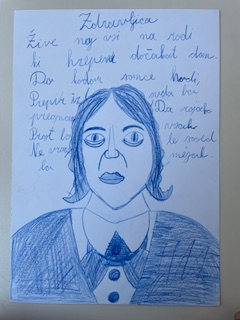 Zdravljica
Žive naj vsi na rodi
ki hrepene dočakat dan,
Da koder sonce hodi,
Prepir iz sveta bo
pregnan Da rojak
Prost bo vsak
Ne vrag le sosed
bo mejak.